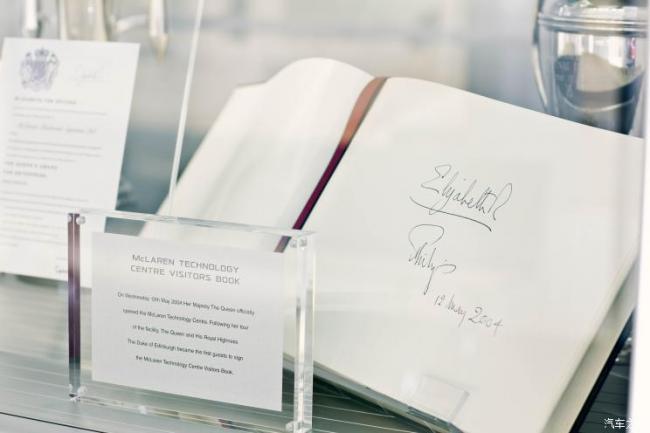 ELIZABETH THE SECOND
THE QUEEN'S AWARD
FOR ENTERPRISE
Elizabeth R
Philip
12 May 2004
McLAREN TECHNOLOGY
CENTRE VISITORS BOOK
On Wednesday 12th May 2004 Her Majesty The Queen officially
opened the McLaren Technology Centre. Following her tour
of the facility, The Queen and His Royal Highness
The Duke of Edinburgh became the first guests to sign
the McLaren Technology Centre Visitors Book.
汽车之